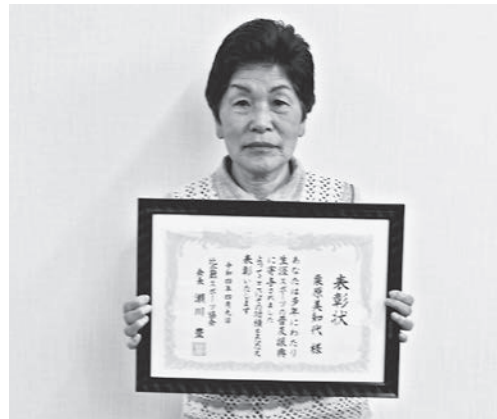 表彰状
栗原美知代 様
あなたは多年にわたり
生涯スポーツの普及振興
に寄与されました
よってここにその功績をたたえ
表彰いたします
令和四年四月九日
スポーツ協会
会長 瀬川 豊